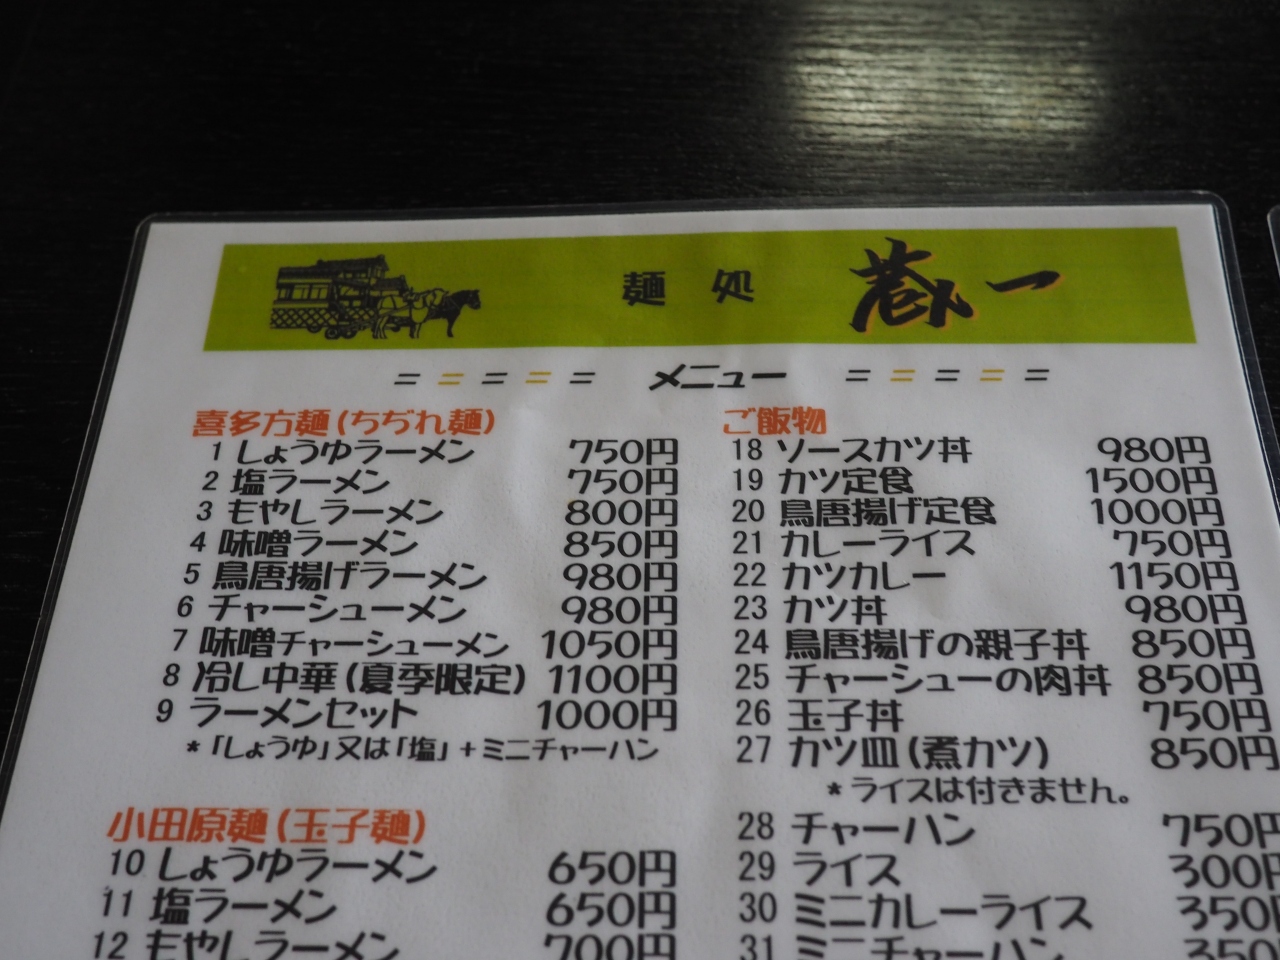 麺処 蔵一
= = = = = メニュー = = = = =
喜多方麺(ちぢれ麺)
1 しょうゆラーメン 750円
2 塩ラーメン 750円
3 もやしラーメン 800円
4 味噌ラーメン 850円
5 鳥唐揚げラーメン 980円
6 チャーシューメン 980円
7 味噌チャーシューメン 1050円
8 冷し中華(夏季限定) 1100円
9 ラーメンセット 1000円
*「しょうゆ」又は「塩」+ミニチャーハン
小田原麺(玉子麺)
10 しょうゆラーメン 650円
11 塩ラーメン 650円
12 もやしラーメン 700円
ご飯物
18 ソースカツ丼 980円
19 カツ定食 1500円
20 鳥唐揚げ定食 1000円
21 カレーライス 750円
22 カツカレー 1150円
23 カツ丼 980円
24 鳥唐揚げの親子丼 850円
25 チャーシューの肉丼 850円
26 玉子丼 750円
27 カツ皿(煮カツ) 850円
*ライスは付きません。
28 チャーハン 750円
29 ライス 300円
30 ミニカレーライス 350円
31 ミニチャーハン 350